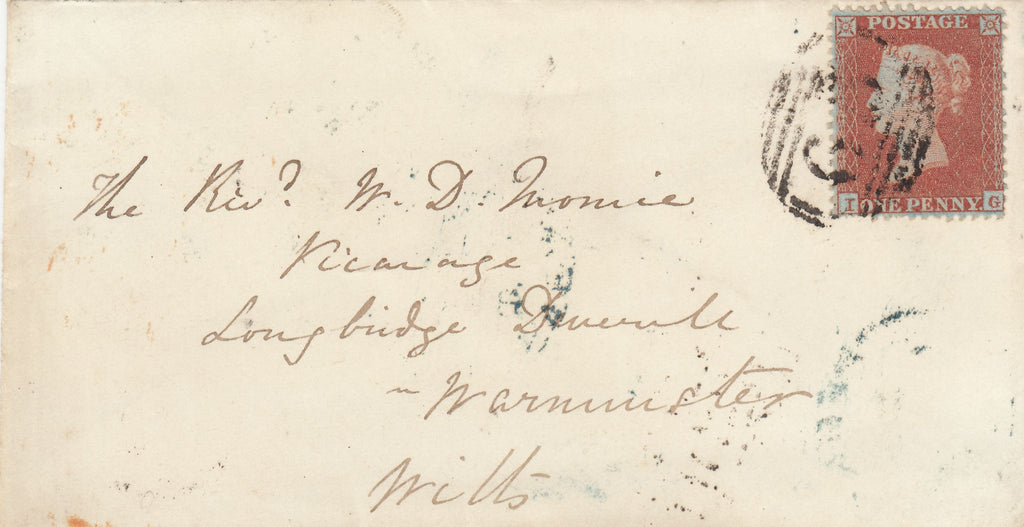 POSTAGE
I G
ONE PENNY.
The Revd. W. D. Morrice
Vicarage
Longbridge Deverill
Warminster
Wilts